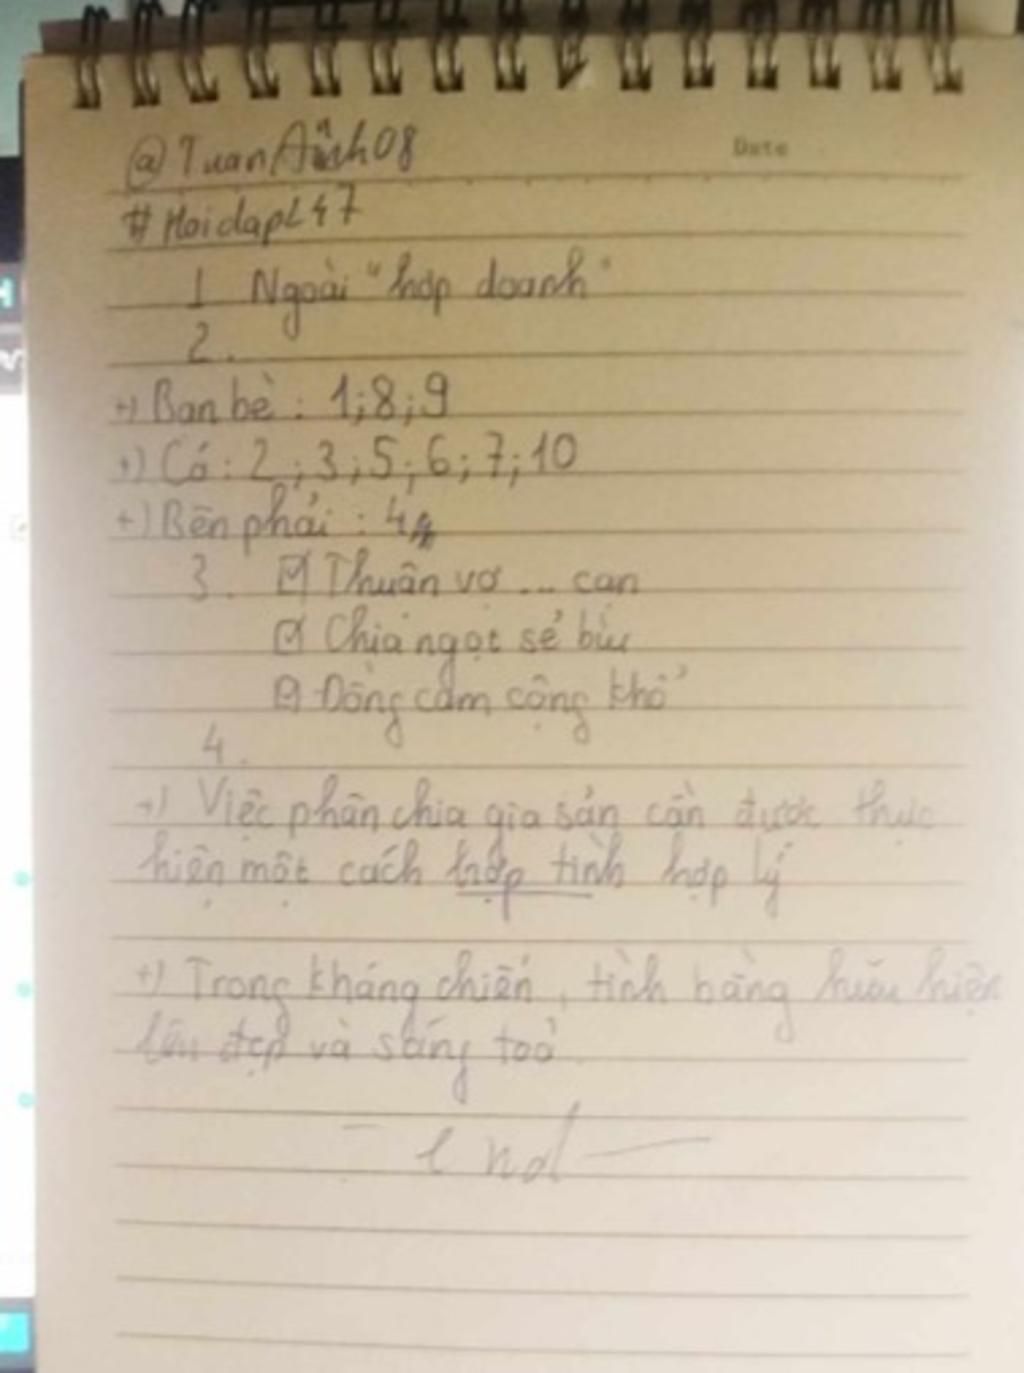 Date
@TuanAnh08
#Hoidap247
1 Ngoài "hợp doanh"
2.
+) Bạn bè : 1;8;9
+) Có : 2;3;5;6;7;10
+) Bên phải : 4
3. Thuận vợ ... cạn
Chia ngọt sẻ bùi
Đồng cam cộng khổ
4.
+) Việc phân chia gia sản cần được thực
hiện một cách hợp tình hợp lý
+) Trong kháng chiến, tình bằng hữu hiện
lên đẹp và sáng toả
- end -